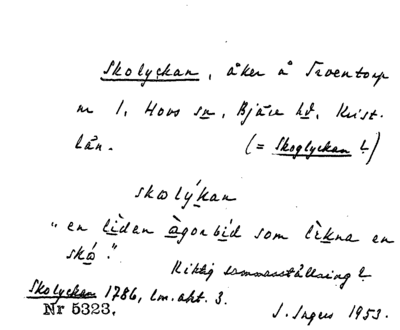 Skolyckan, åker å Troentorp
nr 1, Hovs sn, Bjäre hd, Krist.
län. (= Skoglyckan?)
skωlýkan
"en lìden àgorbid som lìkna en
skó".
Riktig sammanställning?
Skolyckan 1786, lm. akt. 3.
Nr 5323. J. Ingers 1953.